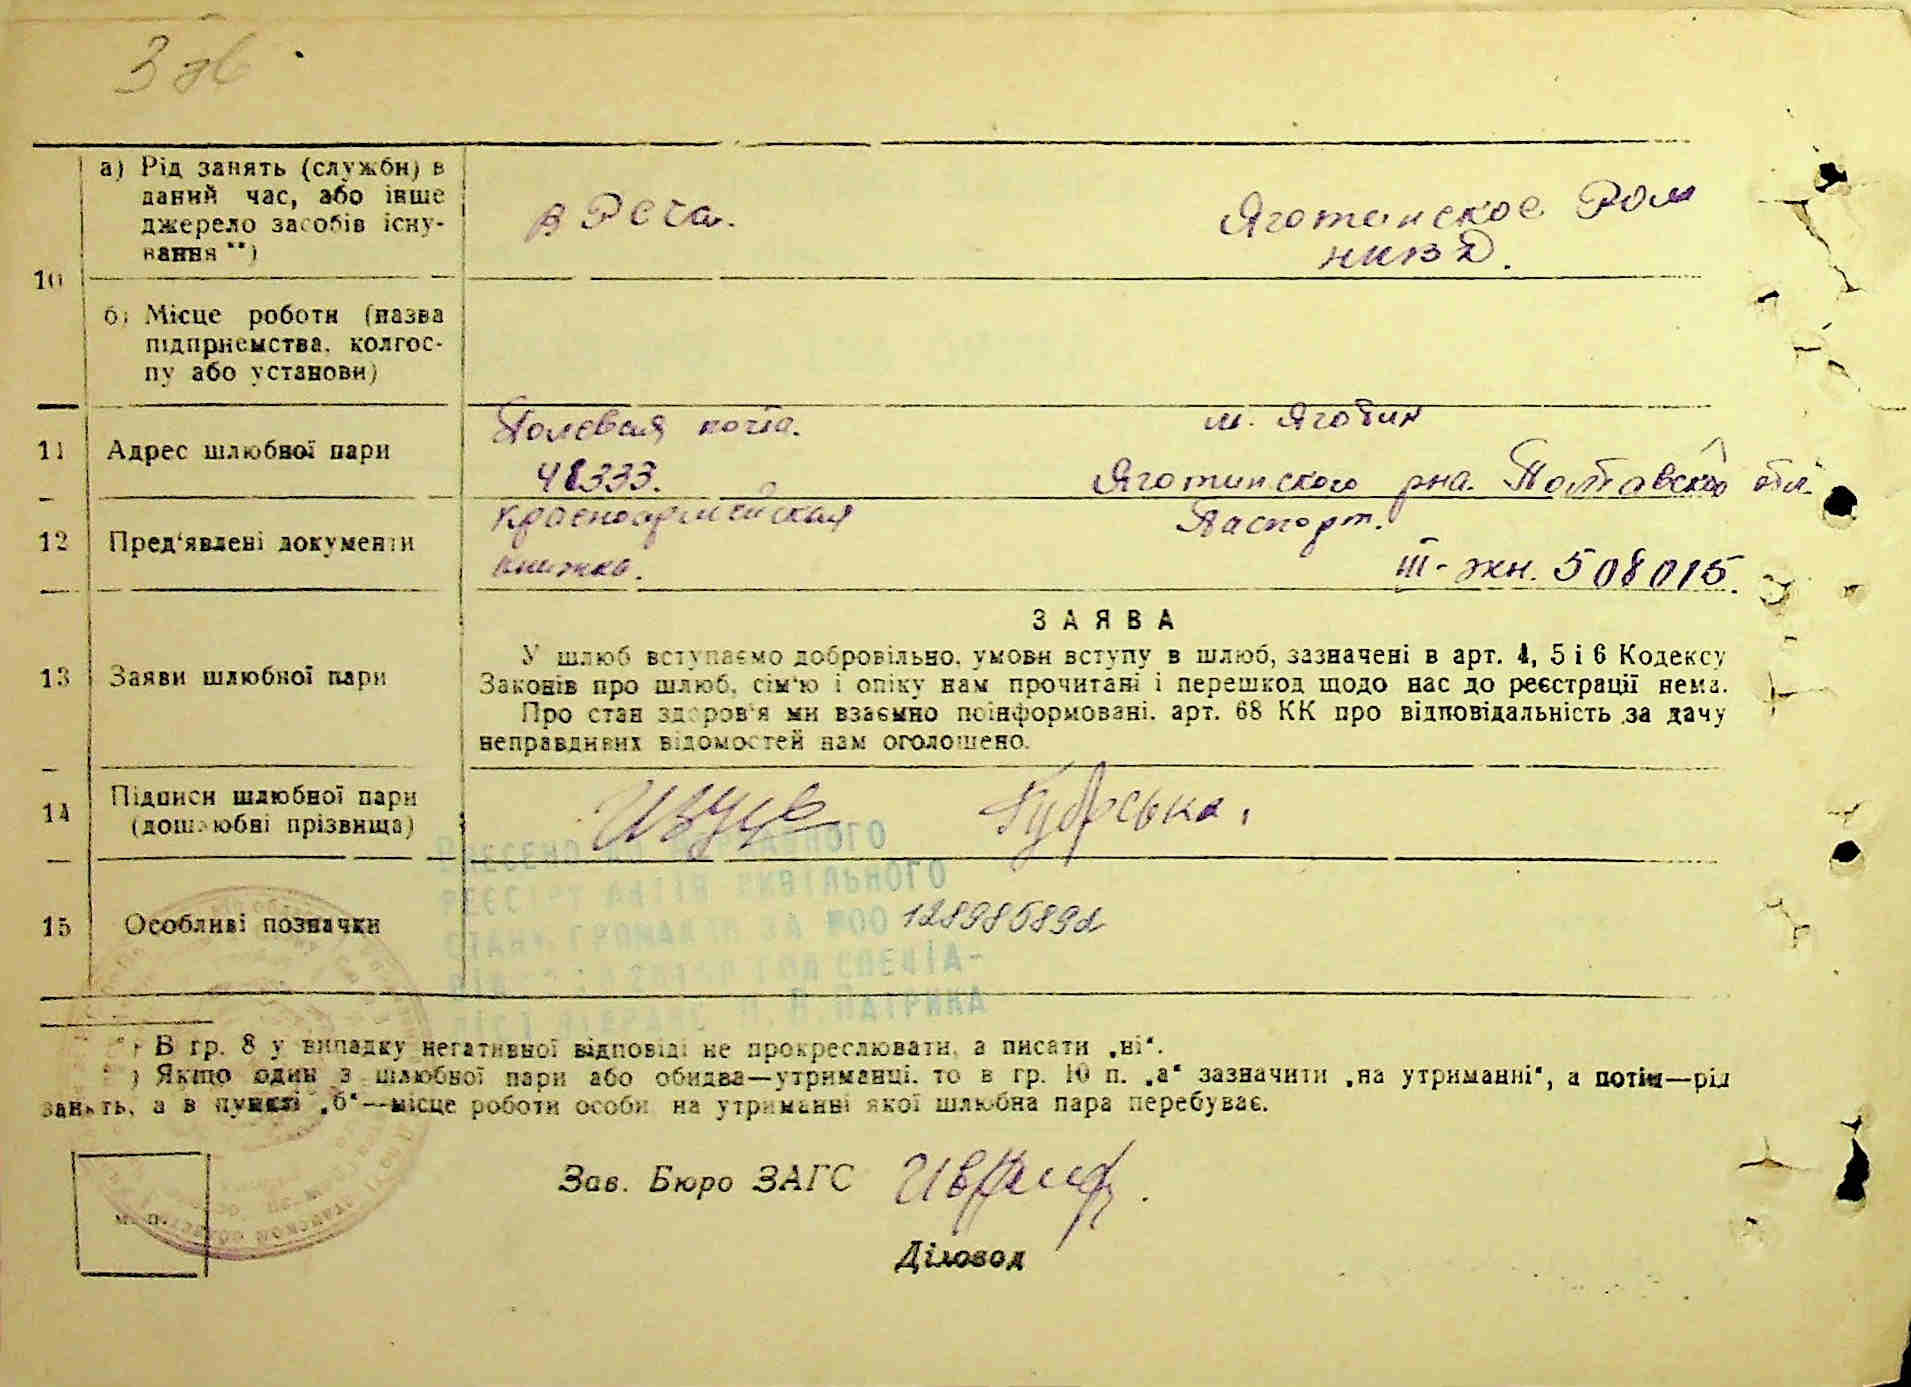 а) Рід занять (служби) в
даний час, або інше
джерело засобів існу-
вання **)
в Р
Яготинское Ром
НКВД.
10
б) Місце роботи (назва
підприємства, колгос-
пу або установи)
11
Адрес шлюбної пари
Полевая почта.
48333.
м. Яготин
Яготинского рна. Полтавской обл.
12
Пред'явлені документи
Красноармейская
книжка.
Паспорт.
III-жн. 508015.
13
Заяви шлюбної пари
ЗАЯВА
У шлюб вступаємо добровільно, умови вступу в шлюб, зазначені в арт. 4, 5 і 6 Кодексу
Законів про шлюб, сім'ю і опіку нам прочитані і перешкод щодо нас до реєстрації нема.
Про стан здоров'я ми взаємно поінформовані. арт. 68 КК про відповідальність за дачу
неправдивих відомостей нам оголошено.
14
Підписи шлюбної пари
(дошлюбні прізвища)
ВНЕСЕНО ДО ДЕРЖАВНОГО
РЕЄСТРУ АКТІВ ЦИВІЛЬНОГО
СТАНУ ГРОМАДЯН ЗА №00
15
Особливі позначки
СПЕЦІА-
ЛІСТ
*) В гр. 8 у випадку негативної відповіді не прокреслювати, а писати „ні“.
**) Якщо один з шлюбної пари або обидва—утриманці, то в гр. 10 п. „а“ зазначити „на утриманні“, а потім—рід
занять, а в пункті „б“—місце роботи особи на утриманні якої шлюбна пара перебуває.
Зав. Бюро ЗАГС
м. п.
Діловод